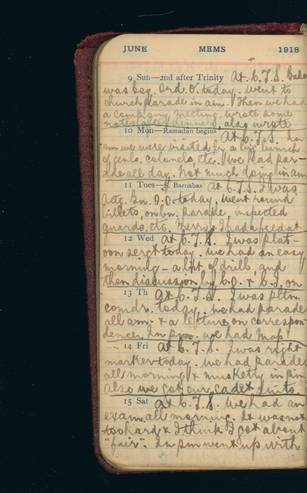 JUNE MEMS 1918
9 Sun—2nd after Trinity At C.T.S.
was Coy. Ord. O. today. Went to
church parade in a.m. Then we had
a company meeting. Wrote some
notes also wrote
10 Mon—Ramadan begins At C.T.S. In
a.m. we were visited by a big bunch
of gen'ls, colonels, etc. We had par-
ade all day. Not much doing in a.m
11 Tues—S. Barnabas At C.T.S. I was
Bn. O.O. today. Went round
billets, on bn. parade, inspected
guards, etc.
12 Wed At C.T.S. I was plat-
oon sergt today. We had an easy
morning - a bit of drill, and
then discussion by C.O. & on
13 Th At C.T.S. I was pltn
comdr. today. We had parade
all a.m. & a lecture on correspon
dence. In p.m. we had map
14 Fri At C.T.S. I was right
marker today. We had parade
all morning & musketry in p.m
Also we got our cadet
15 Sat At C.T.S. We had an
exam all morning. It was not
too hard & I think I got about
"fair". In p.m. went up with